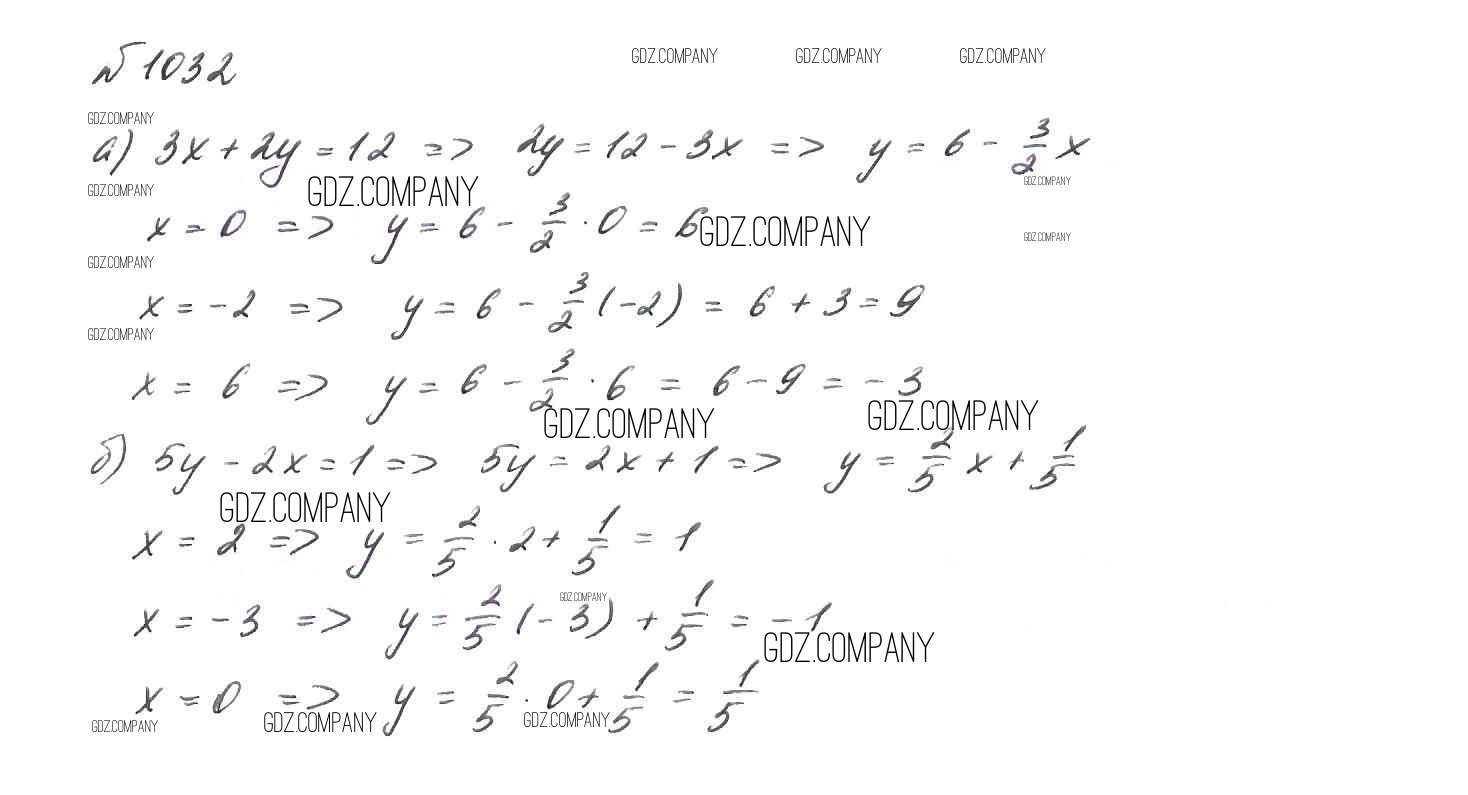 № 1032
GDZ.COMPANY GDZ.COMPANY GDZ.COMPANY
GDZ.COMPANY
а) 3x + 2y = 12 => 2y = 12 - 3x => y = 6 - 3/2 x
GDZ.COMPANY GDZ.COMPANY GDZ.COMPANY
x = 0 => y = 6 - 3/2 · 0 = 6
GDZ.COMPANY GDZ.COMPANY
GDZ.COMPANY
x = -2 => y = 6 - 3/2 (-2) = 6 + 3 = 9
GDZ.COMPANY
x = 6 => y = 6 - 3/2 · 6 = 6 - 9 = -3
GDZ.COMPANY GDZ.COMPANY
б) 5y - 2x = 1 => 5y = 2x + 1 => y = 2/5 x + 1/5
GDZ.COMPANY
x = 2 => y = 2/5 · 2 + 1/5 = 1
GDZ.COMPANY
x = -3 => y = 2/5 (-3) + 1/5 = -1
GDZ.COMPANY
x = 0 => y = 2/5 · 0 + 1/5 = 1/5
GDZ.COMPANY GDZ.COMPANY GDZ.COMPANY